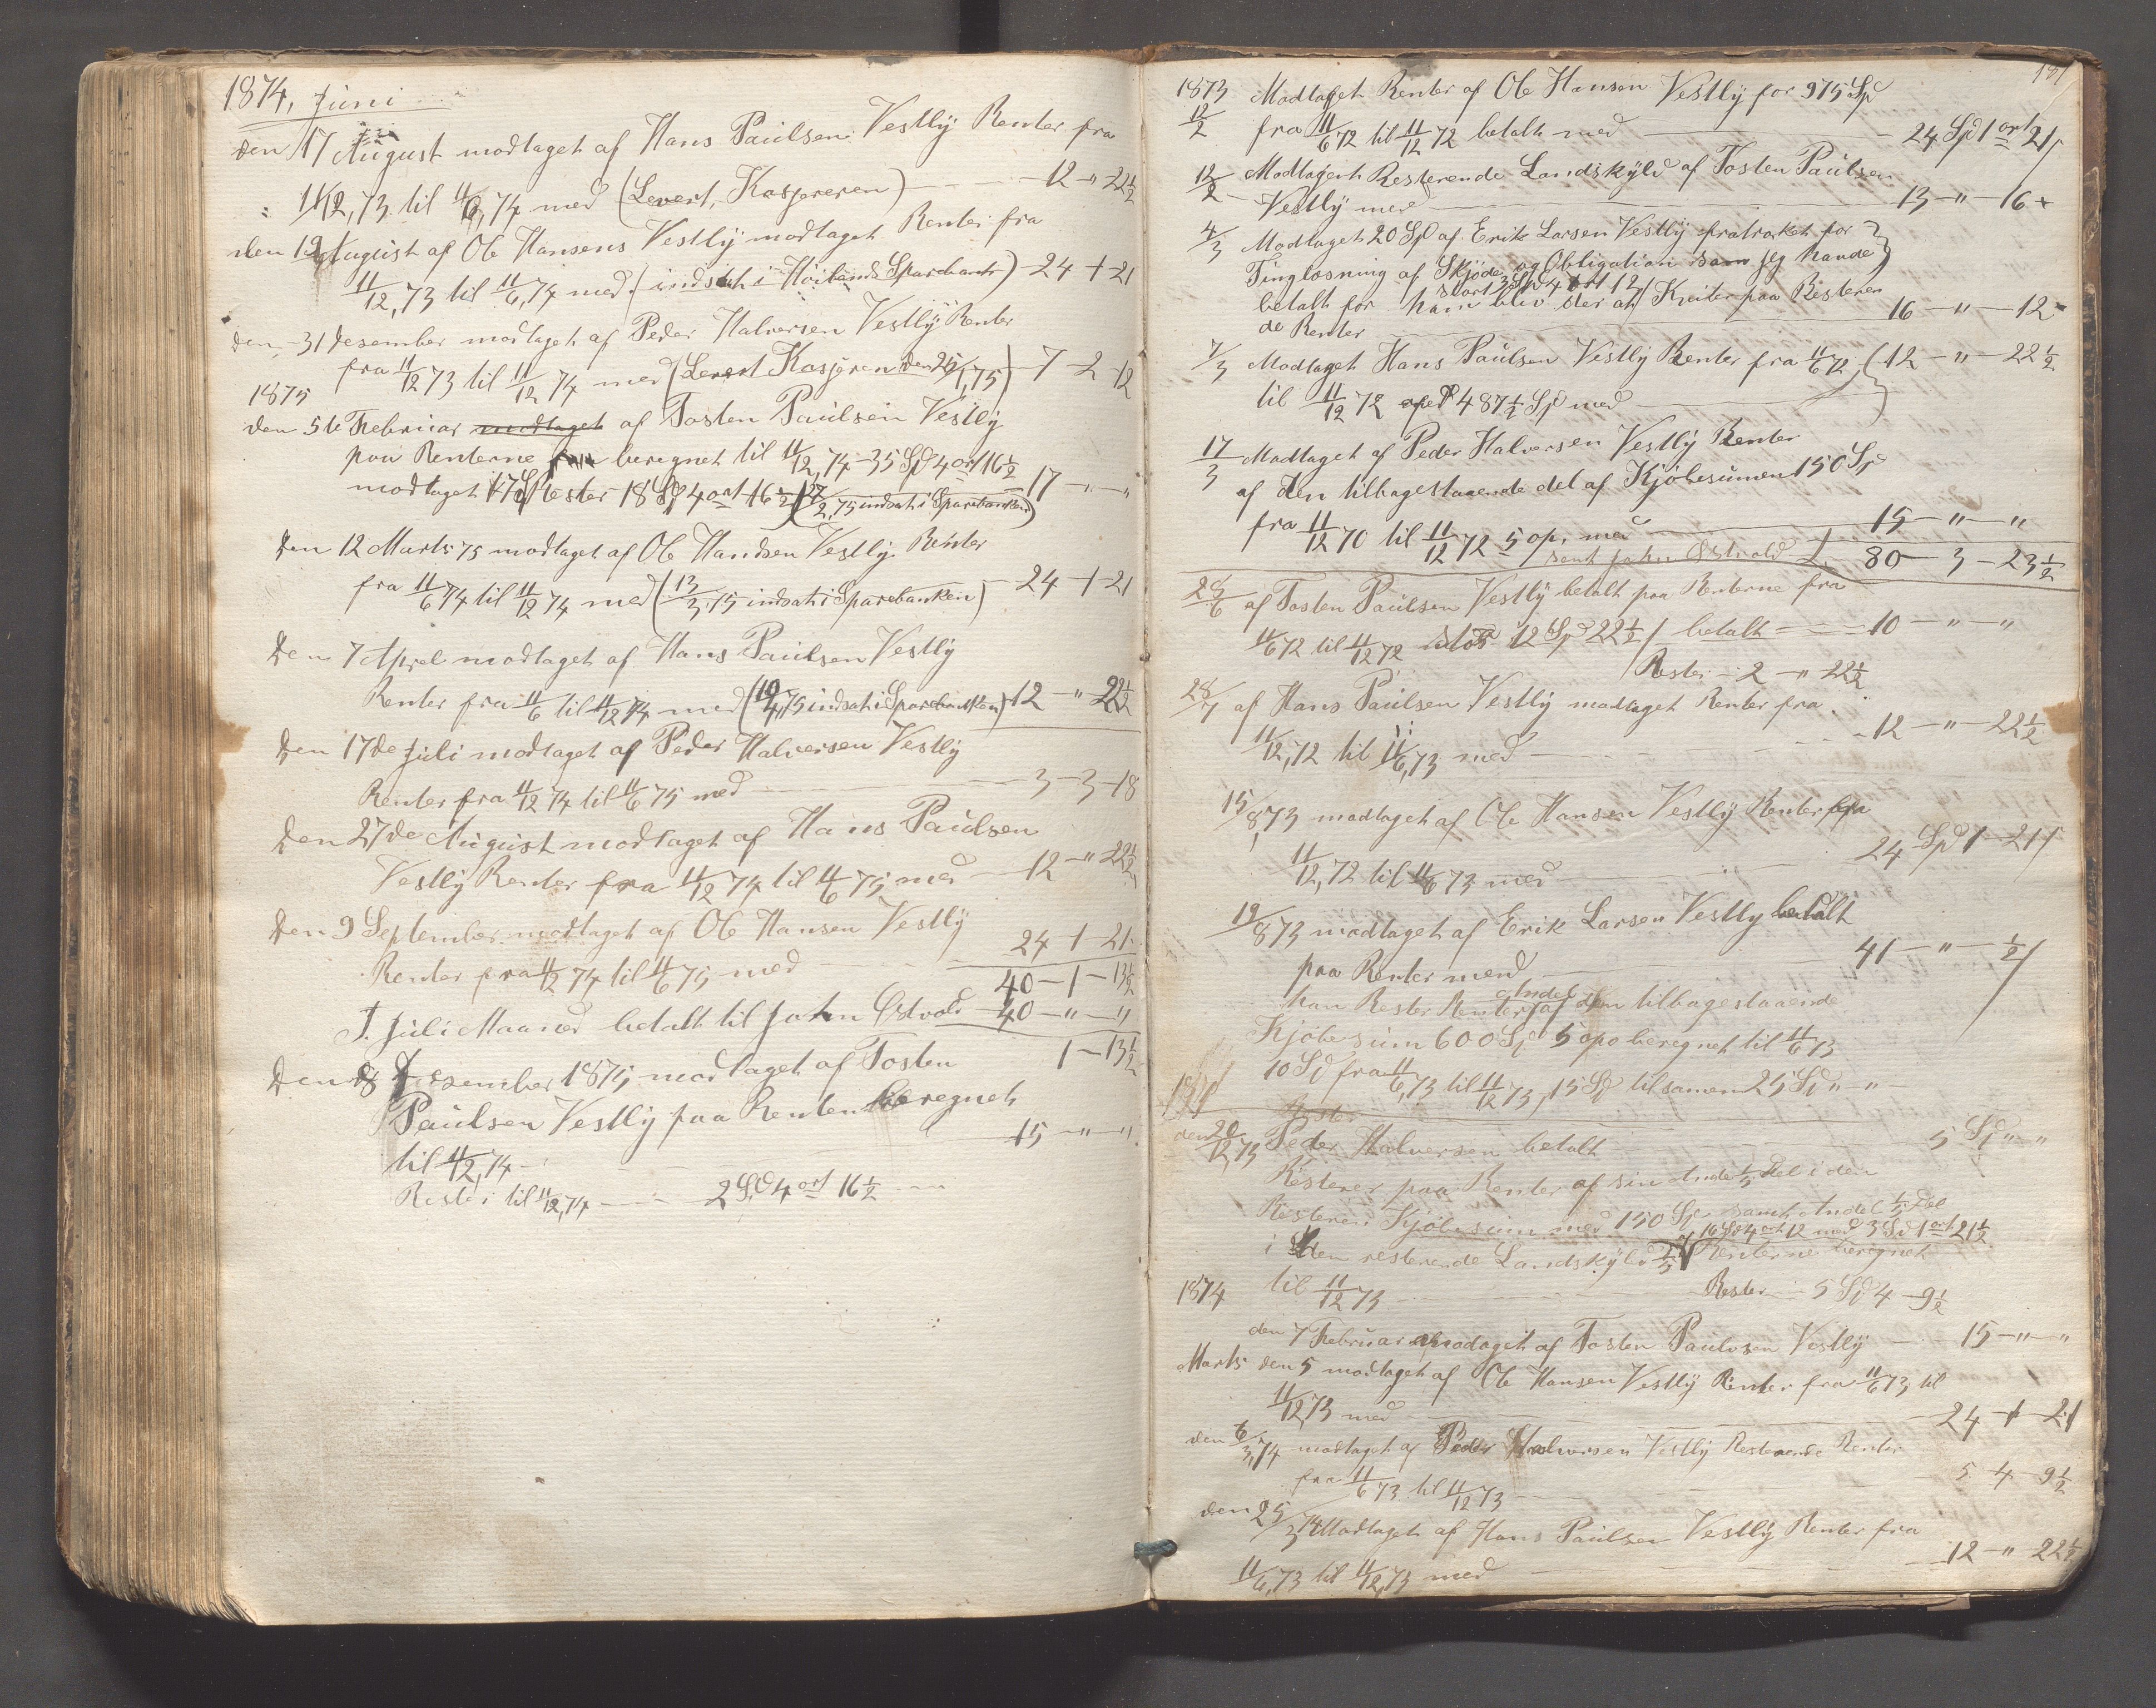 1874, Juni
den 17 August modtaget af Hans Paulsen Vestly Renter fra
11/12, 73 til 11/6, 74 med (Levert, Kasjereren) 12 - " 22½
den 19 August af Ole Hansens Vestly modtaget Renter fra
11/12, 73 til 11/6, 74 med (indsat i Höilands Sparebank) - 24 - 1 - 21
den - 31 desember modtaget af Peder Halversen Vestly Renter
fra 11/12 73 til 11/12 74 med (Levert Kasjeren den 25/1, 75) - 7 - 2 - 12
1875
den 5te Februar modtaget af Tosten Paulsen Vestly
paa Renterne beregnet til 11/12, 74 - 35 Spd 4 ort 16½
modtaget 17 Sp Rester 18 Spd 4 ort 16½ (27/2, 75 indsat i Sparebanken) 17 - " - "
Den 12 Marts 75 modtaget af Ole Handsen Vestly Renter
fra 11/6 74 til 11/12 74 med (13/3, 75 indsat i Sparebanken) - 24 - 1 - 21
Den 7 Aprel modtaget af Hans Paulsen Vestly
Renter fra 11/6 til 11/12 74 med (10/4, 75 indsat i Sparebanken) 12 - " - 22½
Den 17de Juli modtaget af Peder Halversen Vestly
Renter fra 11/12 74 til 11/6 75 med - 3 - 3 - 18
Den 27de August modtaget af Hans Paulsen
Vestly Renter fra 11/12 74 til 11/6 75 med - 12 - " 22½
Den 9 September modtaget af Ole Hansen Vestly
Renter fra 11/12 74 til 11/6 75 med 24 - 1 - 21
40 - 1 - 13½
I. Juli Maaned betalt til John Østvold - 40 - " - "
1 - 13½
Den 8 Desember 1875 modtaget af Tosten
Paulsen Vestly paa Renten beregnet
til 11/12, 74 - 15 - " - "
Rester til 11/12, 74 - 2 Spd 4 ort 16½

181
1873 Modtaget Renter af Ole Hansen Vestly for 975 Sp
12/2 fra 11/6 72 til 11/12 72 betalt med - 24 Spd 1 ort 21
12/2 - Modtaget Resterende Landskyld af Tosten Paulsen
Vestly med - 13 - " - 16
4/3 Modtaget 20 Spd af Erik Larsen Vestly fratrøket for
Tinglæsning af Skjøde og Obligation som jeg havde
stort 3 Spd 4 ort 12
betalt for ham bliv der at Kvitere paa Resteren
de Renter - 16 - " - 12
7/3 Modtaget Hans Paulsen Vestly Renter fra 11/6 72 (12 - " - 22½
til 11/12 72 af 487½ Sp med
17/3 Modtaget af Peder Halversen Vestly Renter
af den tilbagestaaende del af Kjøbesumen 150 Sp
fra 11/12 70 til 11/12 72 5 op, med - 15 - " - "
sent John Østvold 80 - 3 - 23½
28/6 af Tosten Paulsen Vestly betalt paa Renterne fra
11/6 72 til 11/12 72 stor 12 Spd 22½ betalt - 10 - " - "
Rester - 2 - " 22½
28/7 af Hans Paulsen Vestly modtaget Renter fra
11/12, 72 til 11/6, 73 med - 12 - " - 22½
15/8, 73 modtaget af Ole Hansen Vestly Renter fra
11/12, 72 til 11/6 73 med - 24 Spd 1 - 21
19/8 73 modtaget af Erik Larsen Vestly betalt
paa Renter med - 41 - " - ½
Andel
han Rester Renter af den tilbagestaaende
Kjøbesum 600 Sp 5 opo beregnet til 11/6 73
10 Sp fra 11/6, 73 til 11/12 73, 15 Sp tilsamen 25 Sp " - "
den 20/12, 73 Peder Halversen betalt - 5 Sp " - "
Resterer paa Renter af sin Andel 1/5 Del i den
Resterer Kjøbesum med 150 Sp samt Andel 1/5 Del
af 16 Spd 4 ort 12 med 3 Sp 1 ort 21½
i den resterende Landskyld 1/5 Renterne beregnet
til 11/12 73 - Rester - 5 Spd 4 - 9½
1874
den 7 Februar modaget af Tosten Paulsen Vestly - 15 - " - "
Marts den 5 modtaget af Ole Hansen Vestly Renter fra 11/6 73 til
11/12, 73 med - 24 - 1 - 21
den 6/3, 74 modtaget af Peder Halversen Vestly Resterende Renter
fra 11/6 73 til 11/12 73 - 5 - 4 - 9½
den 25/3, 74 Modtaget af Hans Paulsen Vestly Renter fra
11/6, 73 til 11/12, 73 med - 12 - " 22½